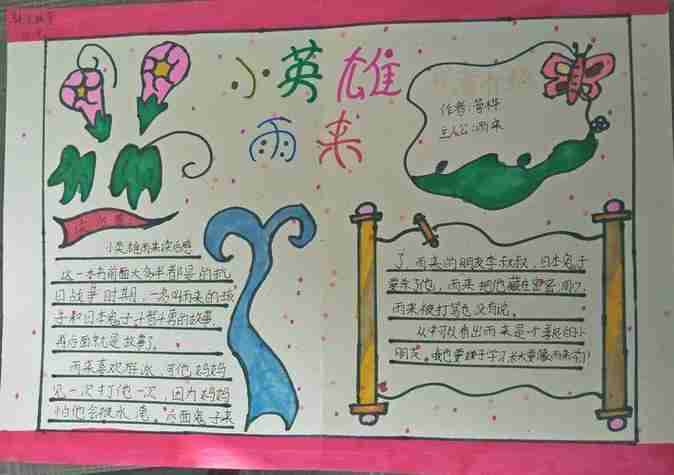 小英雄
雨来
作者:管桦
主人公:雨来
小英雄雨来读后感
这一本书前面大多半都是的抗
日战争时期,一名叫雨来的孩
子和日本鬼子斗智斗勇的故事,
再后面就是故事了。
雨来喜欢游泳,可他妈妈
见一次打他一次,因为妈妈
怕他会被水淹。后面鬼子来
了,雨来的朋友李叔叔,日本鬼子
要杀了他,雨来把他藏在
雨来被打骂也没有说。
从中可以看出雨来是个勇敢的小
朋友。我也要